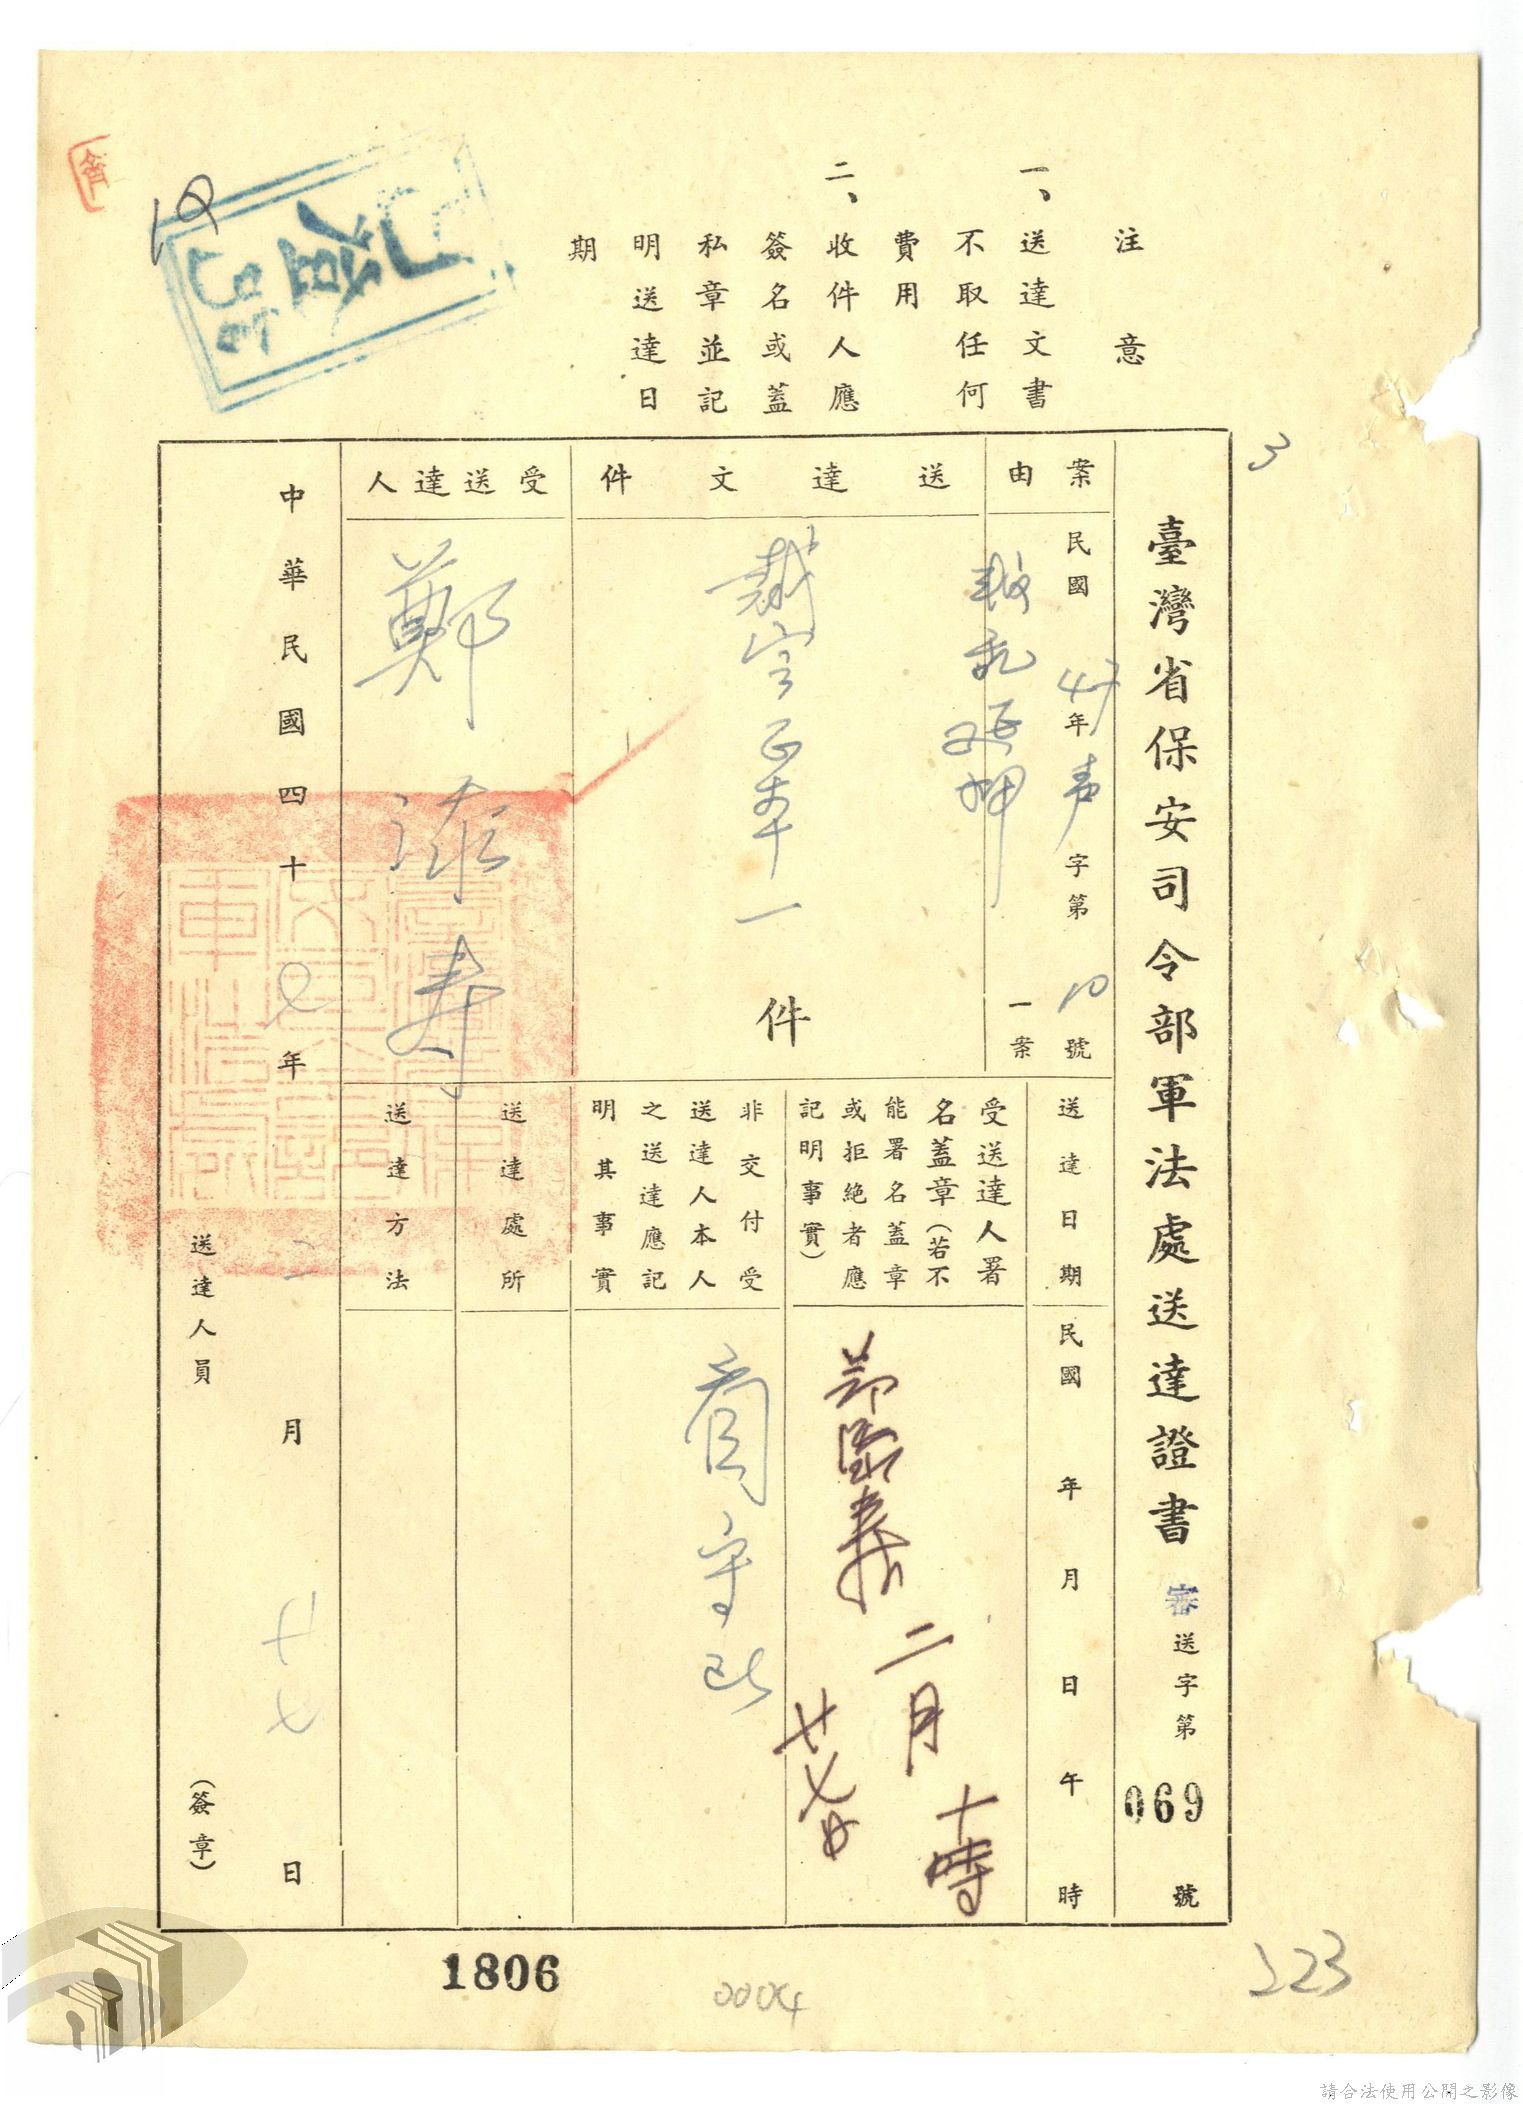 注意
一、送達文書
不取任何
費用
二、收件人應
簽名或蓋
私章並記
明送達日
期
臺灣省保安司令部軍法處送達證書
審送字第069號
案由
民國47年声字第10號
叛乱延押一案
送達文件
裁定正本一件
受送達人
鄭添壽
送達日期
民國 年 月 日 午 時
受送達人署
名蓋章(若不
能署名蓋章
或拒絕者應
記明事實)
二月
廿七日
十時
非交付受
送達人本人
之送達應記
明其事實
送達處所
送達方法
中華民國四十七年二月廿七日
送達人員
(簽章)
3
1806
0004
223
請合法使用公開之影像